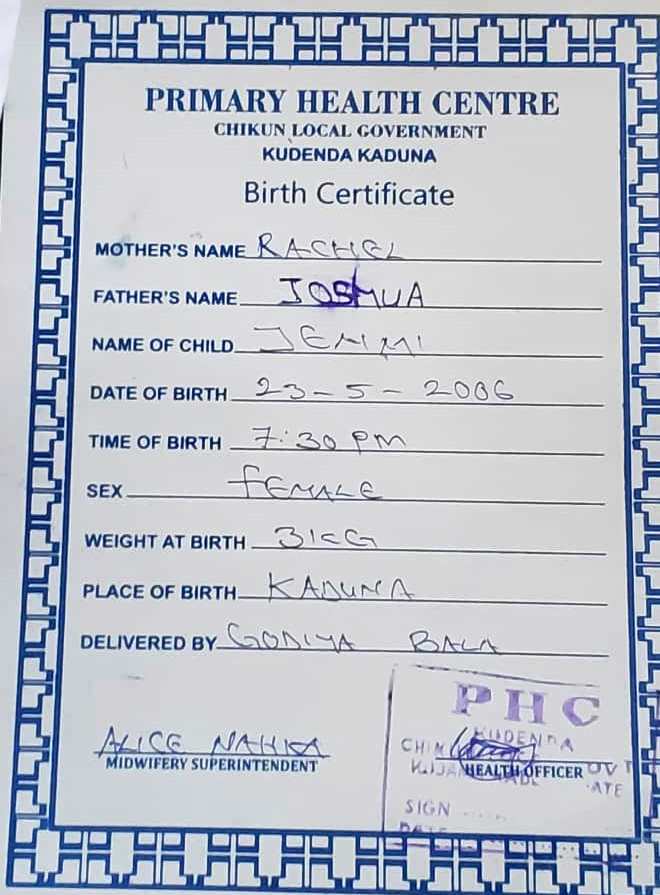 PRIMARY HEALTH CENTRE
CHIKUN LOCAL GOVERNMENT
KUDENDA KADUNA
Birth Certificate
MOTHER'S NAME RACHEL
FATHER'S NAME JOSHUA
NAME OF CHILD JEMMI
DATE OF BIRTH 23-5-2006
TIME OF BIRTH 7:30 PM
SEX FEMALE
WEIGHT AT BIRTH 3KG
PLACE OF BIRTH KADUNA
DELIVERED BY GODIYA BALA
PHC
KUDENDA
ALICE
MIDWIFERY SUPERINTENDENT
HEALTH OFFICER
SIGN
DATE